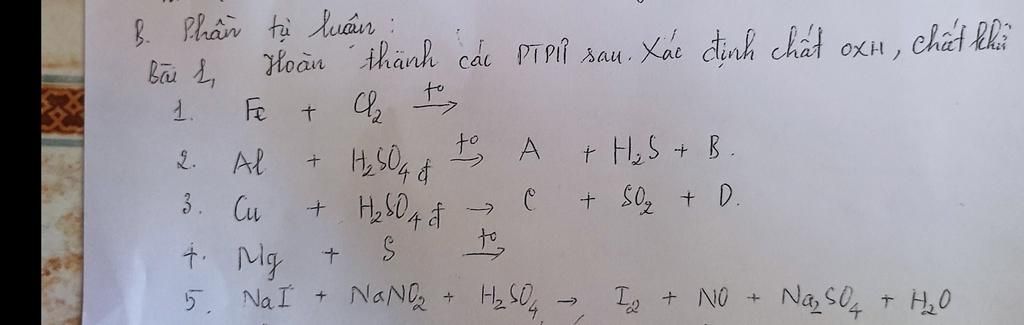 B. Phần tự luân :
Bài 1, Hoàn thành các PTPƯ sau. Xác định chất OXH, chất khử
1. Fe + Cl₂ →(t°)
2. Al + H₂SO₄ đ →(t°) A + H₂S + B.
3. Cu + H₂SO₄ đ → C + SO₂ + D.
4. Mg + S →(t°)
5. NaI + NaNO₂ + H₂SO₄ → I₂ + NO + Na₂SO₄ + H₂O